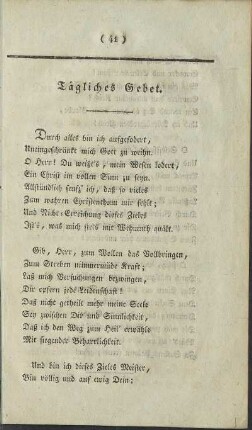 ( 41 )
Tägliches Gebet.
Durch alles bin ich aufgefodert,
Uneingeschränkt mich Gott zu weihn.
O Herr! Du weißt's, mein Wesen lodert,
Ein Christ im vollen Sinn zu seyn.
Allstündlich seufz' ich, daß so vieles
Zum wahren Christenthum mir fehlt;
Und Nicht-Erreichung dieses Zieles
Ist's, was mich stets mit Wehmuth quält.
Gib, Herr, zum Wollen das Vollbringen,
Zum Streben nimmermüde Kraft;
Laß mich Versuchungen bezwingen,
Dir opfern jede Leidenschaft!
Daß nicht getheilt mehr meine Seele
Sey zwischen Dir und Sinnlichkeit,
Daß ich den Weg zum Heil erwähle
Mit siegender Beharrlichkeit.
Und bin ich dieses Zieles Meister,
Bin völlig und auf ewig Dein;